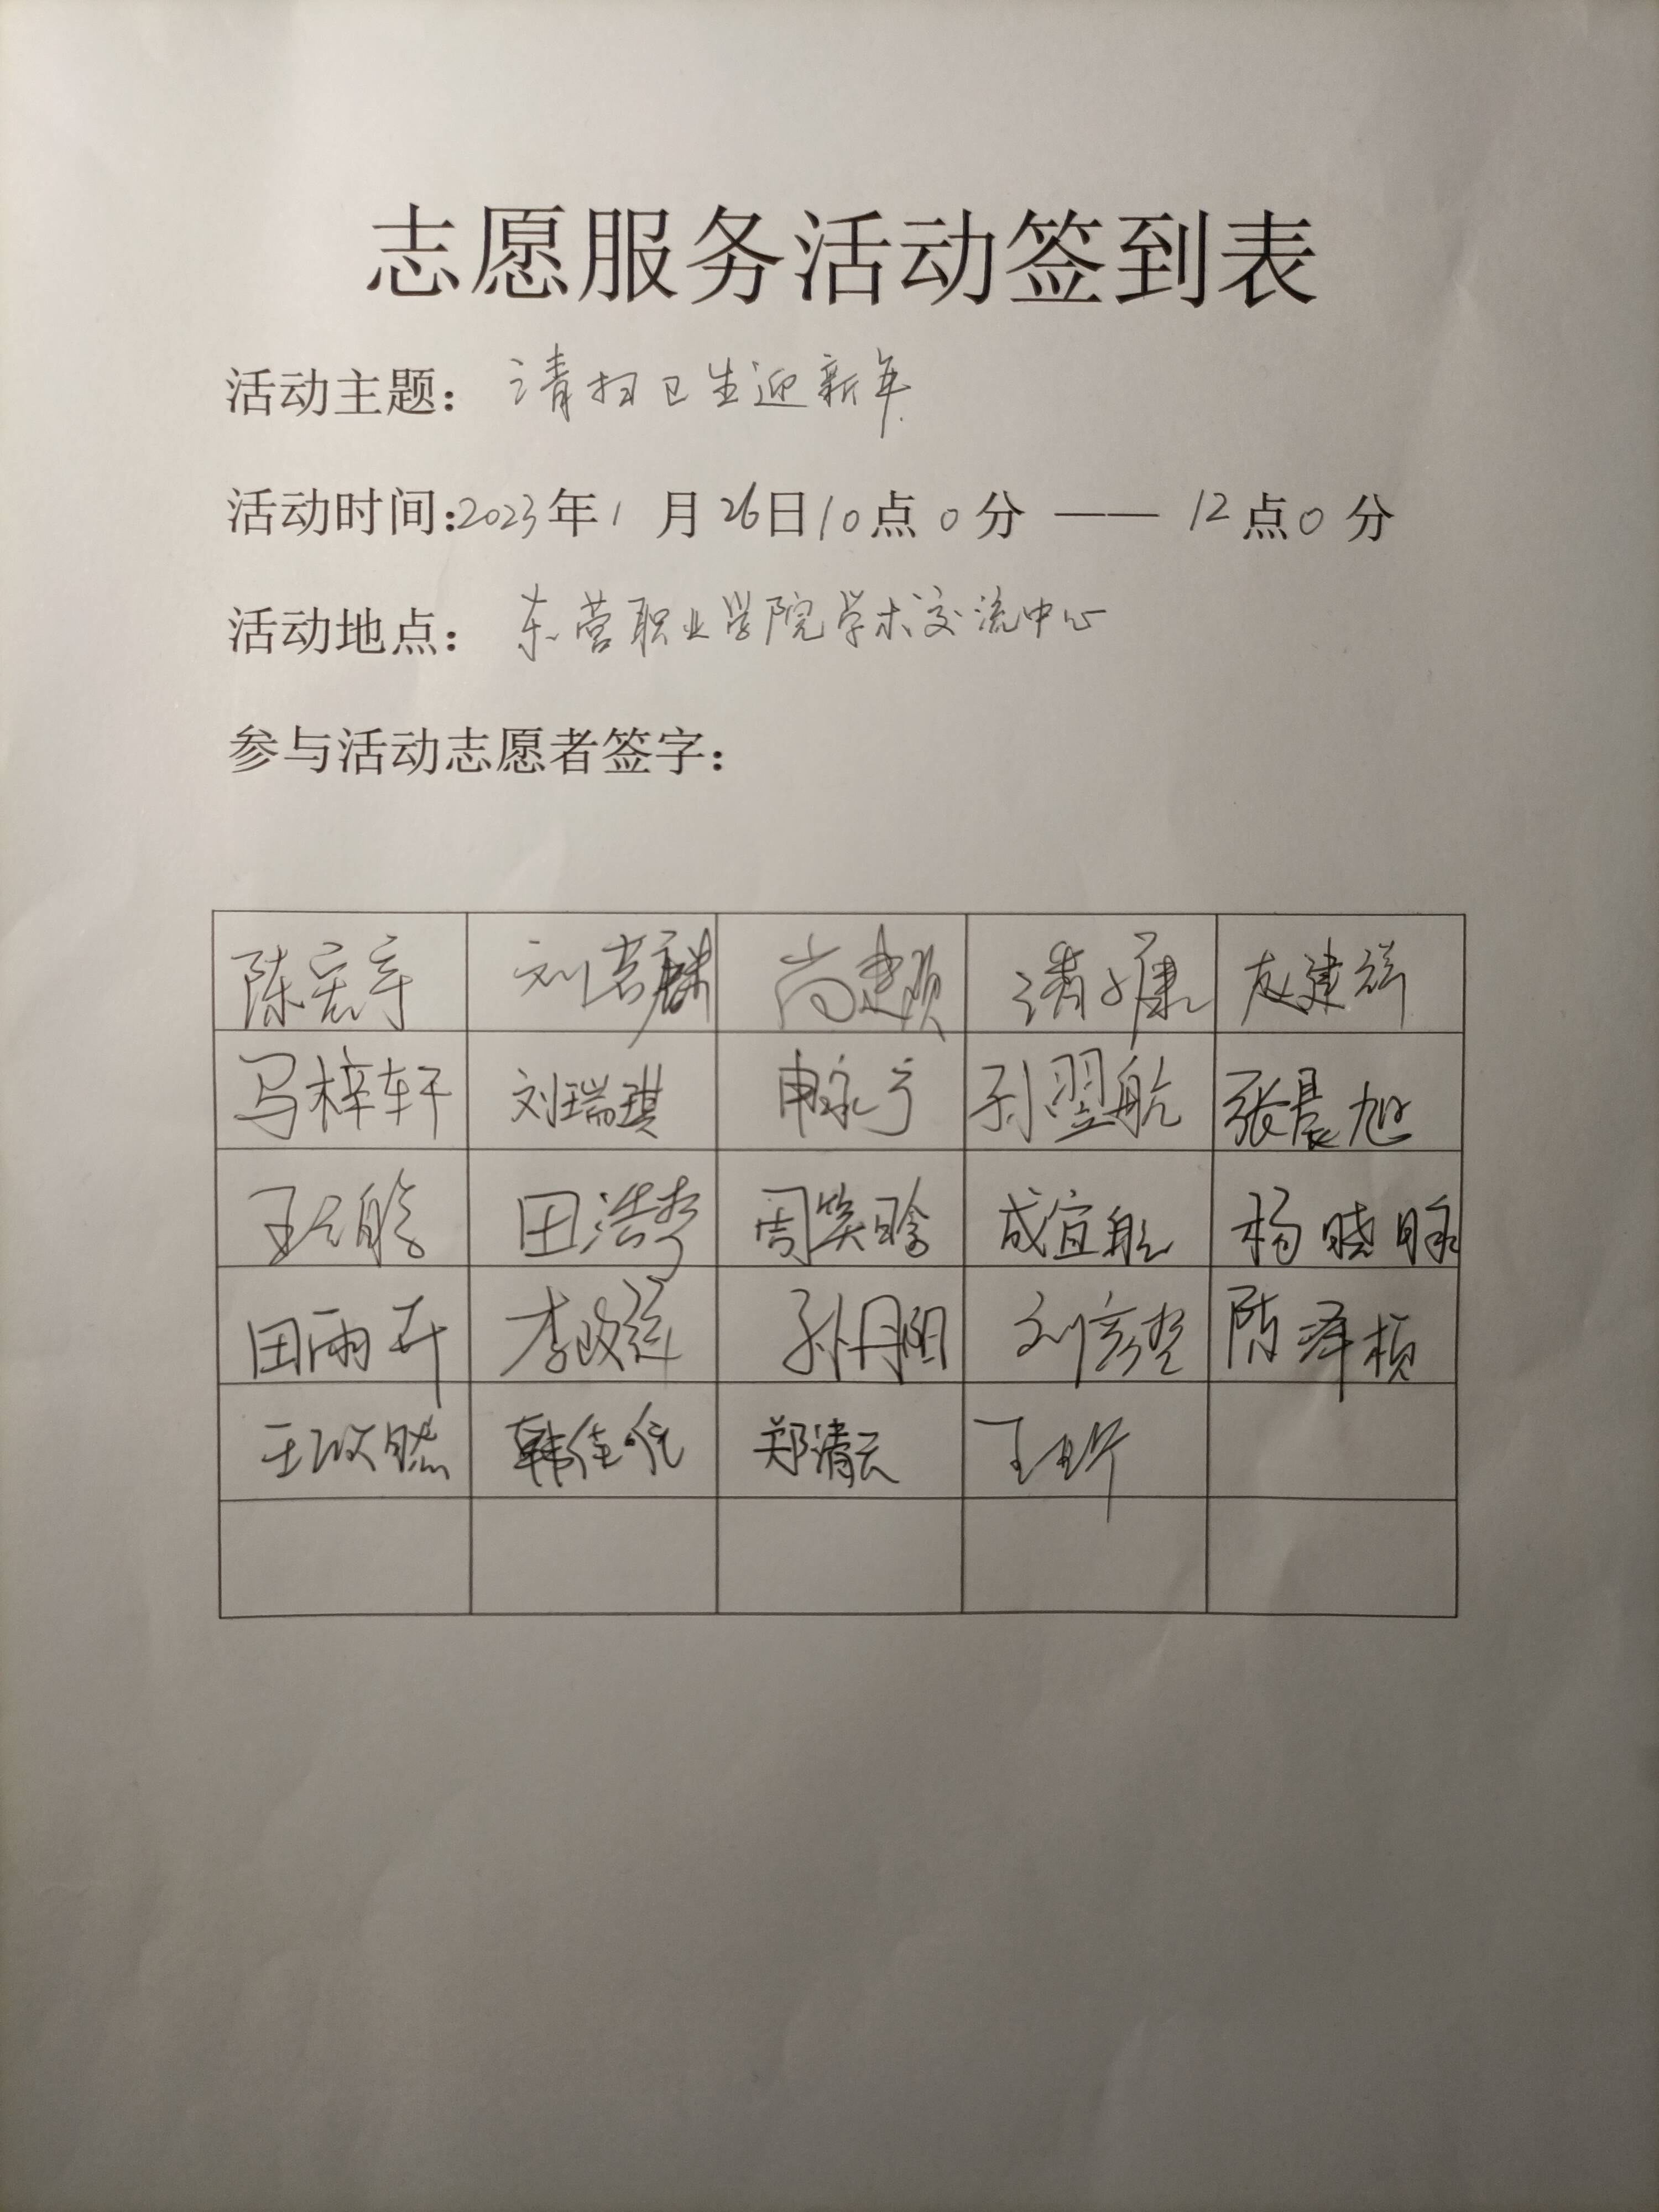 志愿服务活动签到表
活动主题：清扫卫生迎新年
活动时间:2023年1月26日10点0分——12点0分
活动地点：东营职业学院学术交流中心
参与活动志愿者签字：
陈宏宇 刘若麟 尚建颖
马梓轩 刘瑞琪 申家宁 孙翌航 张晨旭
田浩 周笑晗 成宜航 杨晓
田雨 李政 孙丹阳 刘 陈泽桢
王 韩佳 郑清云 王